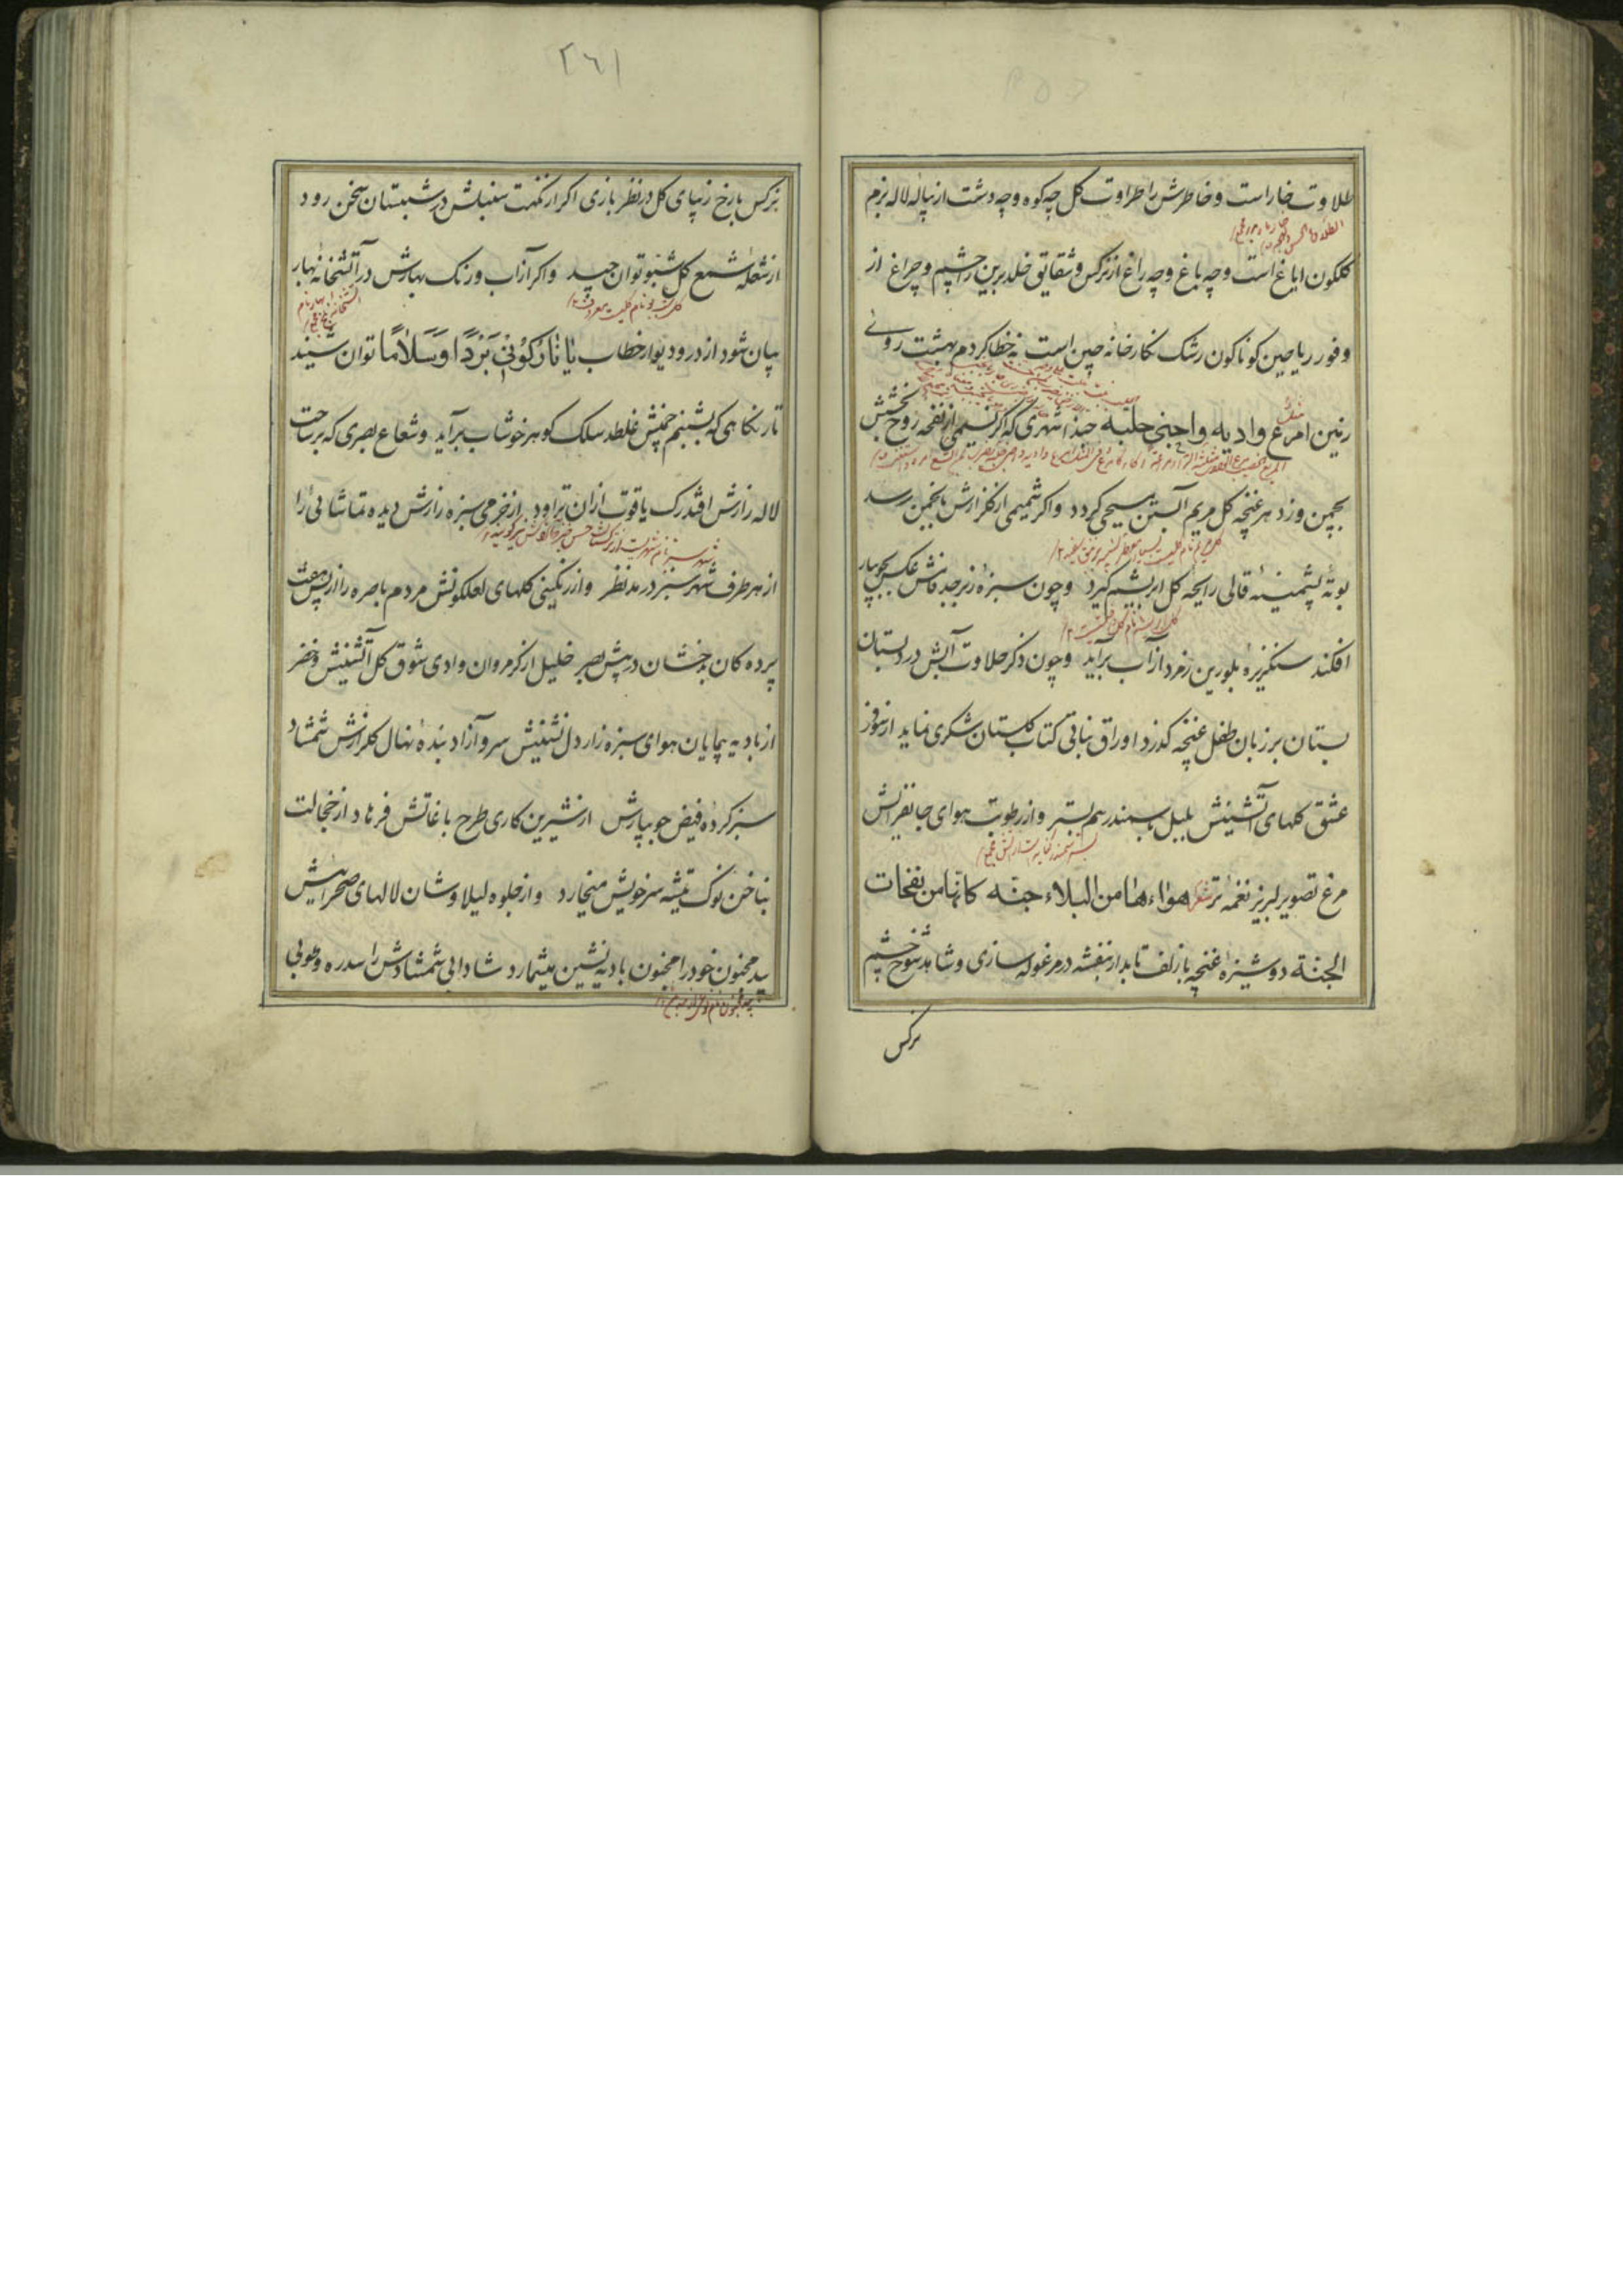 طلاوت خار است و خاطرش را طراوت گل چه کوه و چه دشت از پیاله لاله بزم
کلکون ایاغ است و چه باغ و چه راغ از نرکس و شقایق خلد برین را چشم و چراغ از
وفور ریاحین کوناکون رشک نکارخانه چین است نه خطا کردم بهشت روی
زمین امرع وادیه واجنی حلبه حبذا شهری که اکر نسیمی از نفحه روح بخشش
بچمن وزد هر غنچه کل مریم آبستن مسیحی کردد و اکر شمیمی از کلزارش بانجمن رسد
بوته پشمینه قالی رایحه کل ابریشم کیرد و چون سبزه زبرجد فامش عکس بجویبار
افکند سنکریزه بلورین زمرد از آب برآید و چون ذکر حلاوت آبش در دبستان
بستان بر زبان طفل غنچه کذرد اوراق نباتی کتاب کلستان شکری نماید از سوز
عشق کلهای آتشینش بلبل با سمندر هم بستر و از رطوبت هوای جانفزایش
مرغ تصویر لبریز نغمه تر شعر هواءها من البلاء جنّه کانّها من نفحات
الجنة دوشیزه غنچه با زلف تابدار بنفشه در مرغوله سازی و شاهد شوخ چشم
نرکس
۲۶۱
نرکس با رخ زیبای کل در نظر بازی اکر از نکهت سنبلش در شبستان سخن رود
از شعله شمع کل شبو توان چید و اکر از آب و رنک بهارش در آتشخانه نهار
بیان شود از در و دیوار خطاب یا نار کونی برداً و سلاماً توان شنید
تار نکاهی که بشبنم چمنش غلطد سلک کوهر خوشاب برآید و شعاع بصری که بر ساحت
لاله زارش افتد رک یاقوت از آن تراود از خرمی سبزه زارش دیده تماشائی را
از هر طرف شهر سبز در مد نظر و از رنکینی کلهای لعلکونش مردم باصره را از پس هفت
پرده کان بدخشان در پیش بصر خلیل از کرم روان وادی شوق کل آتشینش و خضر
از بادیه پیمایان هوای سبزه زار دل نشینش سرو آزاد بنده نهال کلزارش شمشاد
سبز کرده فیض جویبارش از شیرین کاری طرح باغاتش فرهاد از خجالت
بناخن نوک تیشه سر خویش میخارد و از جلوه لیلاوشان لالهای صحرایش
بید مجنون خود را مجنون بادیه نشین میشمارد شادابی شمشادش را سدره و طوبی